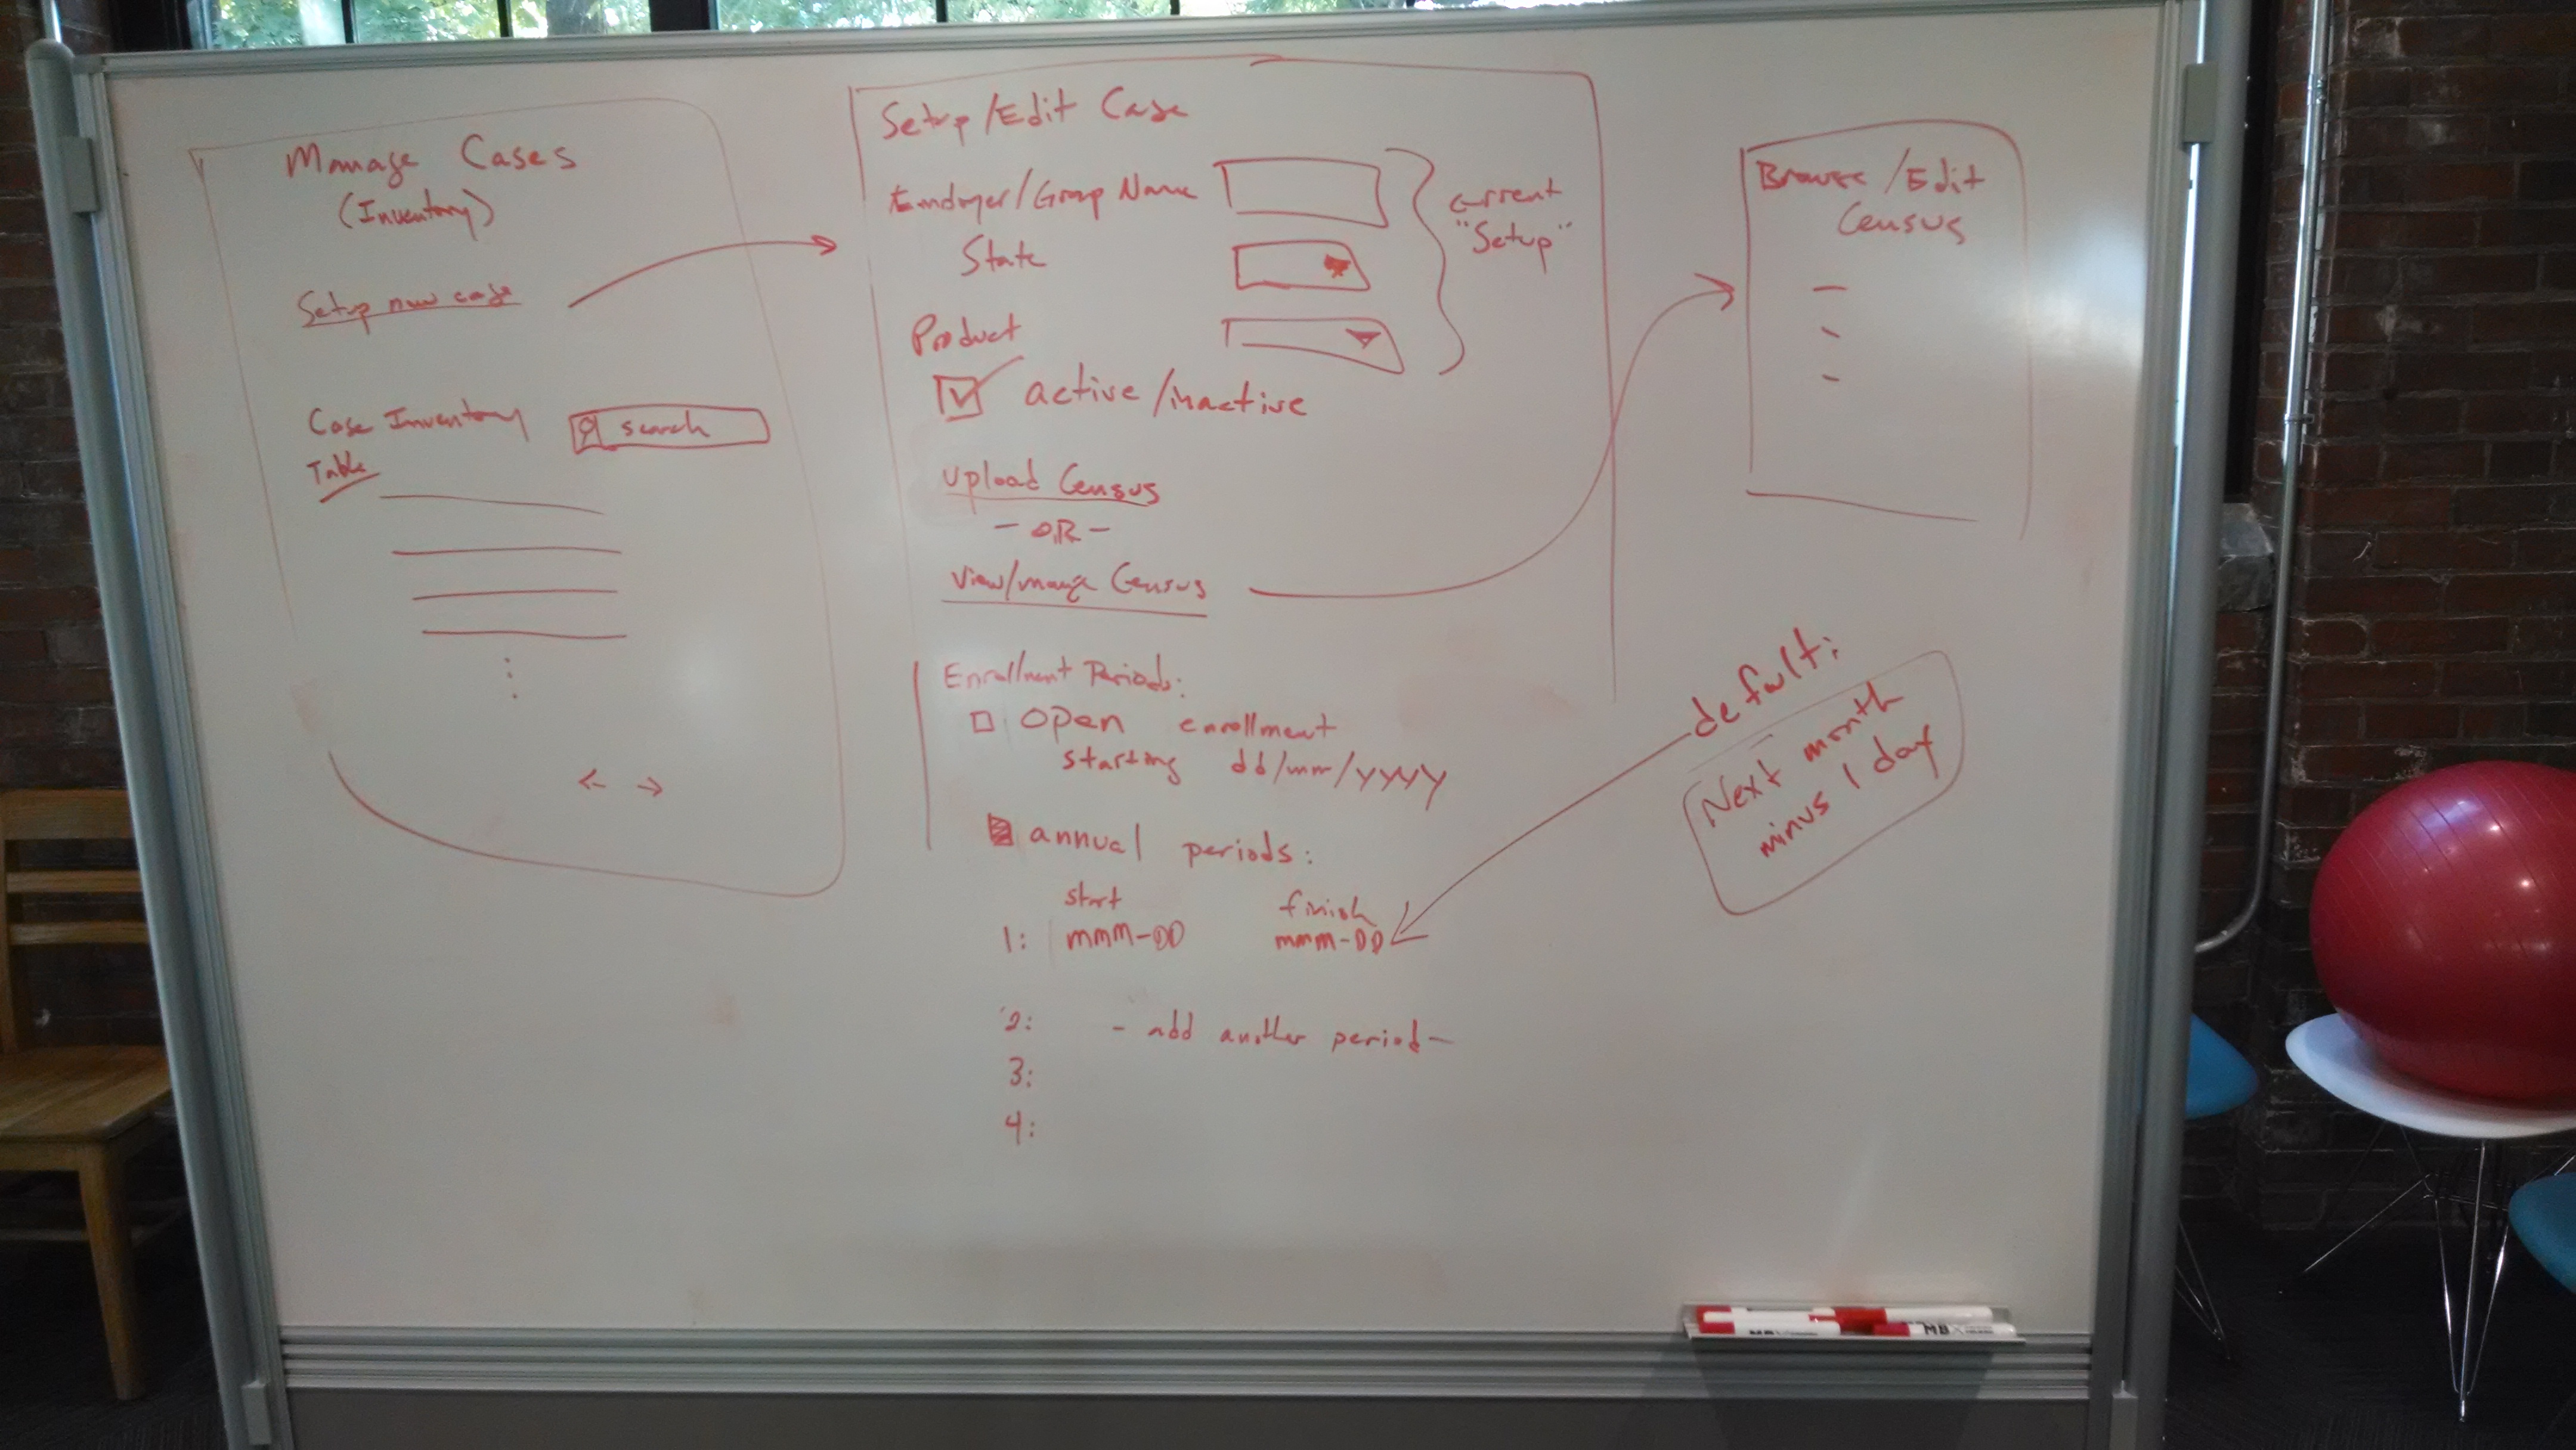 Manage Cases
(Inventory)
Setup new case
Case Inventory
Table
search
<- ->
Setup/Edit Case
Employer/Group Name
State
Product
current
"Setup"
active/inactive
Upload Census
- OR -
View/manage Census
Enrollment Periods:
open enrollment
starting dd/mm/yyyy
annual periods:
start finish
1: mmm-DD mmm-DD
2: - add another period -
3:
4:
Browse/Edit
Census
default:
Next month
minus 1 day